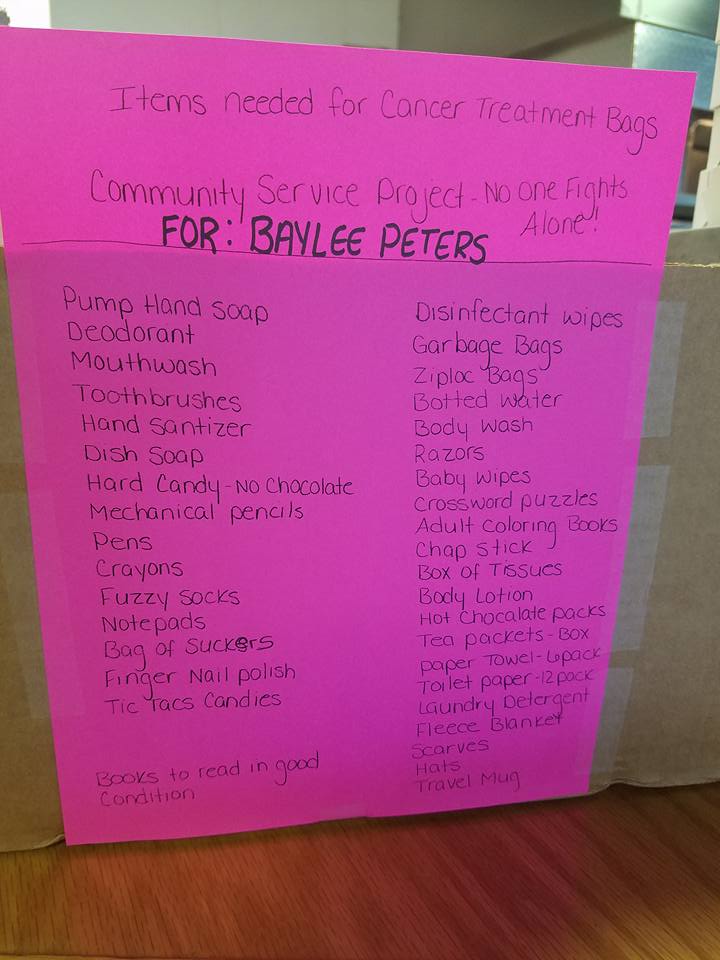 Items needed for Cancer Treatment Bags
Community Service Project - No one Fights
Alone!
FOR: BAYLEE PETERS
Pump Hand Soap
Deodorant
Mouthwash
Toothbrushes
Hand Santizer
Dish Soap
Hard Candy - No Chocolate
Mechanical pencils
Pens
Crayons
Fuzzy Socks
Notepads
Bag of Suckers
Finger Nail polish
Tic Tacs Candies
Books to read in good
Condition
Disinfectant wipes
Garbage Bags
Ziploc Bags
Botted water
Body wash
Razors
Baby wipes
Crossword puzzles
Adult Coloring Books
Chap Stick
Box of Tissues
Body Lotion
Hot Chocolate packs
Tea packets - Box
paper Towel - 6pack
Toilet paper - 12 pack
Laundry Detergent
Fleece Blanket
Scarves
Hats
Travel Mug